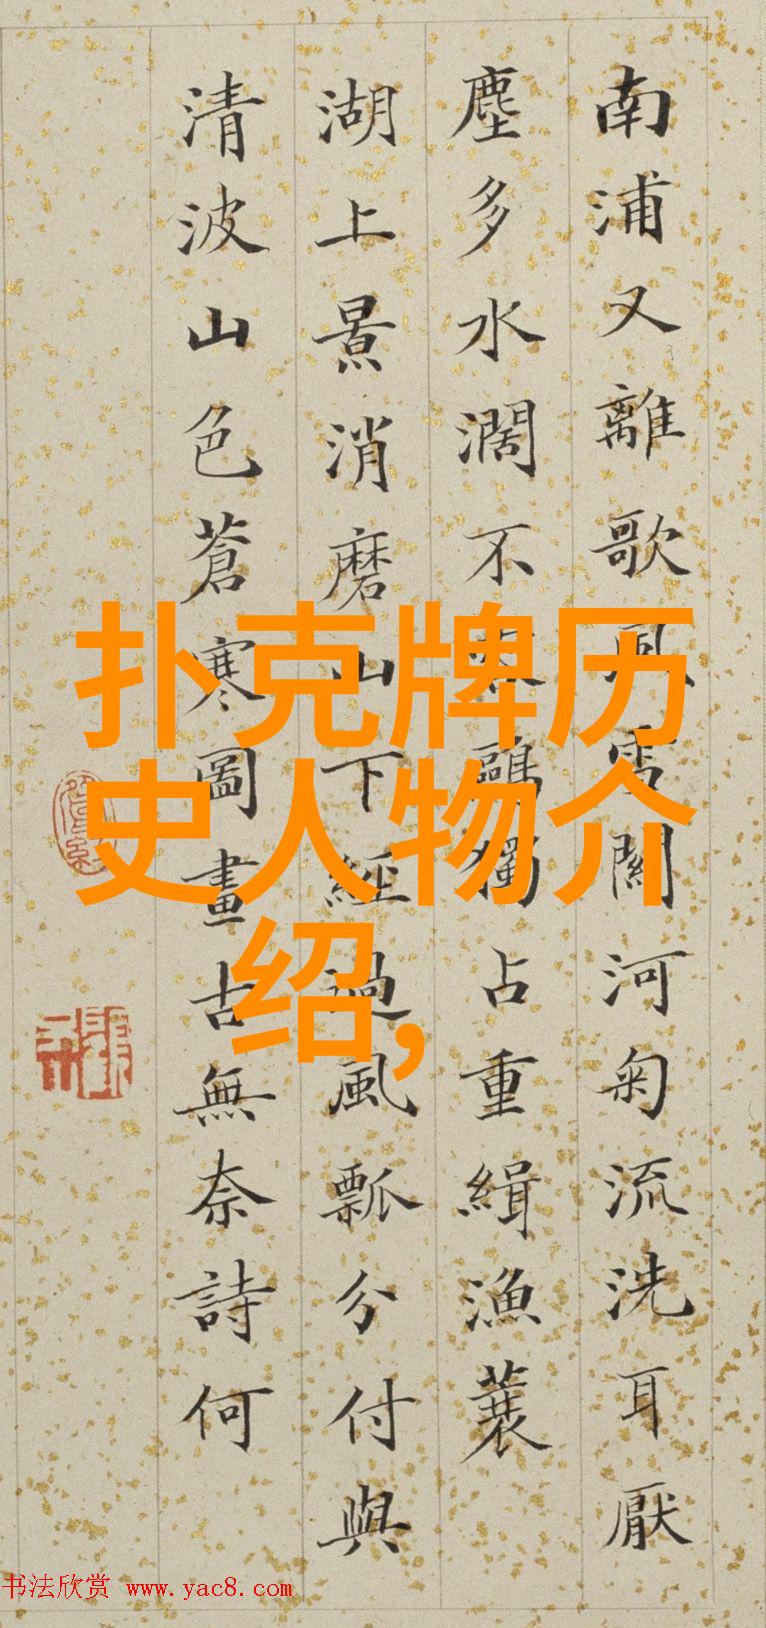 南浦又離歌風雪關河匊流洗耳厭
塵多水濶不鷗獨占重緝漁蓑
湖上景消磨山下經過風瓢分付與
清波山色蒼寒圖畫古無奈詩何
扑克牌历
史人物介
绍,
书法欣赏 www.yac8.com